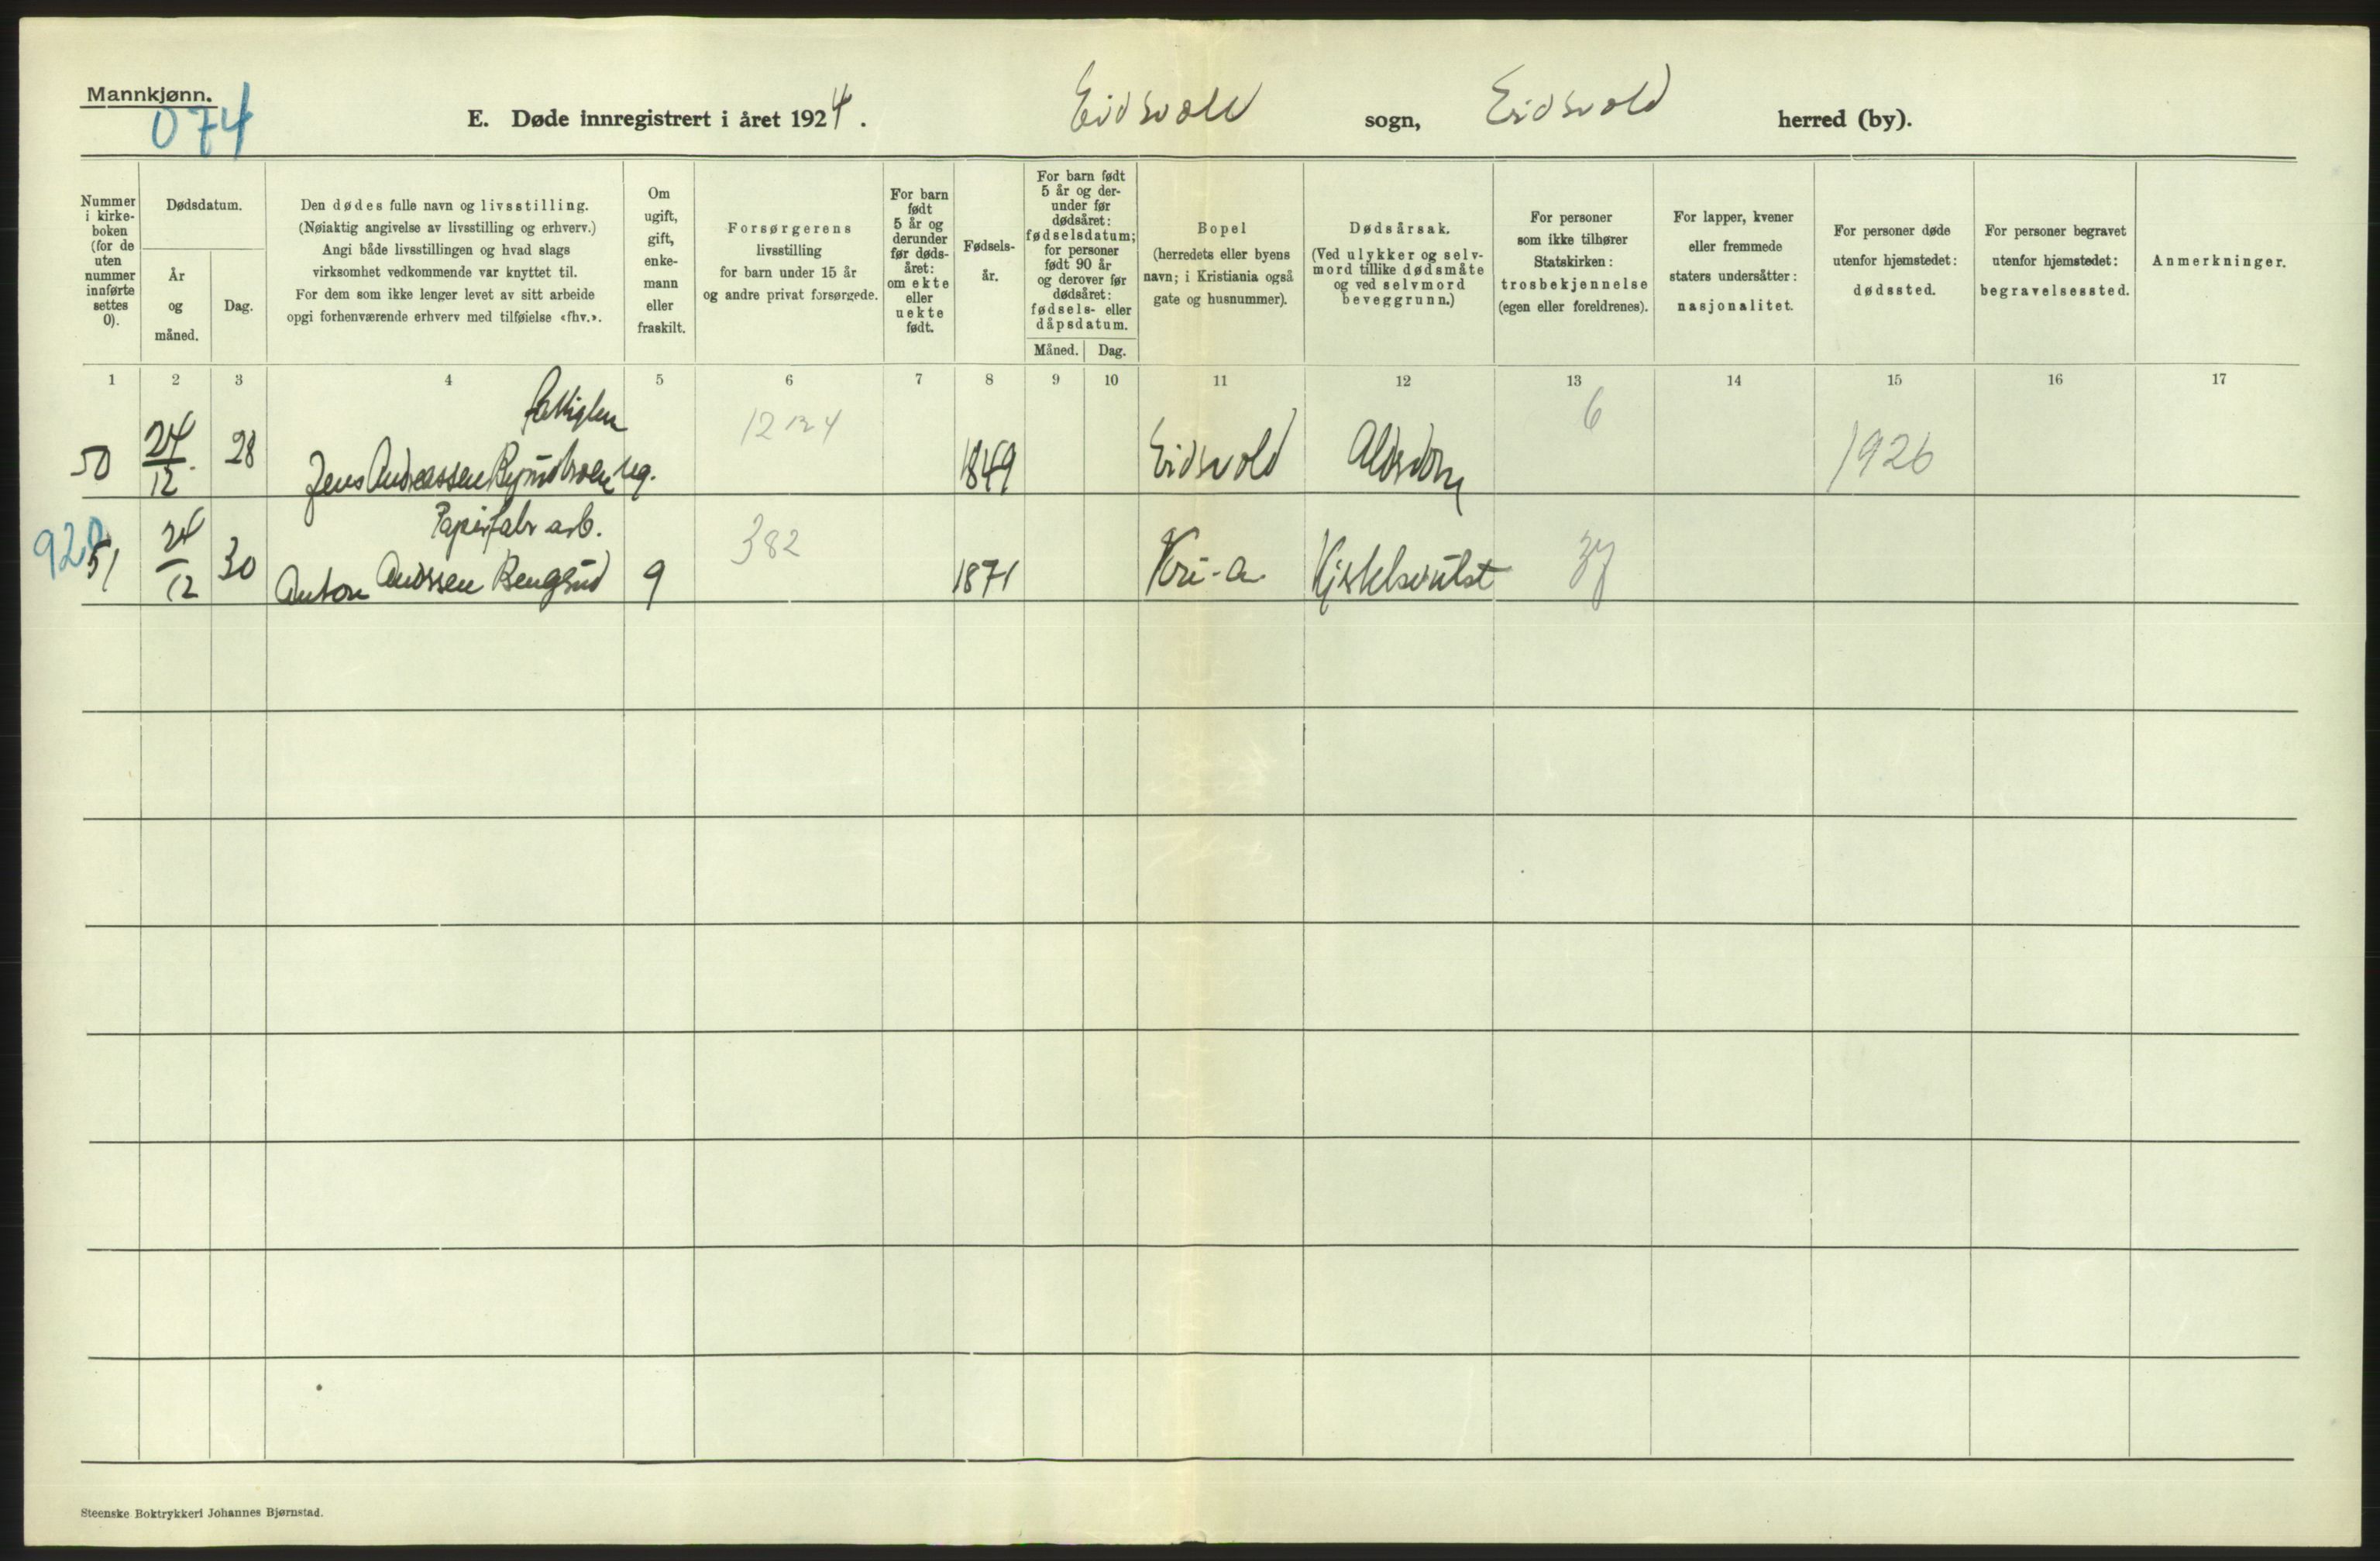 Mannkjønn.
074
E. Døde innregistrert i året 1924. Eidsvold sogn, Eidsvold herred (by).
Nummer i kirkeboken (for de uten nummer innførte settes 0).
Dødsdatum.
År og måned.
Dag.
Den dødes fulle navn og livsstilling.
(Nøiaktig angivelse av livsstilling og erhverv.)
Angi både livsstillingen og hvad slags
virksomhet vedkommende var knyttet til.
For dem som ikke lenger levet av sitt arbeide
opgi forhenværende erhverv med tilføielse «fhv.».
Om ugift, gift, enkemann eller fraskilt.
Forsørgerens
livsstilling
for barn under 15 år
og andre privat forsørgede.
For barn født 5 år og derunder før dødsåret: om ekte eller uekte født.
Fødselsår.
For barn født 5 år og derunder før dødsåret: fødselsdatum; for personer født 90 år og derover før dødsåret: fødsels- eller dåpsdatum.
Måned. Dag.
Bopel
(herredets eller byens
navn; i Kristiania også
gate og husnummer).
Dødsårsak.
(Ved ulykker og selvmord tillike dødsmåte og ved selvmord beveggrunn.)
For personer
som ikke tilhører
Statskirken:
trosbekjennelse
(egen eller foreldrenes).
For lapper, kvener
eller fremmede
staters undersåtter:
nasjonalitet.
For personer døde
utenfor hjemstedet:
dødssted.
For personer begravet
utenfor hjemstedet:
begravelsessted.
Anmerkninger.
1 2 3 4 5 6 7 8 9 10 11 12 13 14 15 16 17
50 24/12. 28 Jens Andreassen ug. 1849 Eidsvold Aldsdom 6 1926
Papirfabr arb.
51 24/12 30 Anton Anderssen 9 382 1871 Kri-a 37
Steenske Boktrykkeri Johannes Bjørnstad.